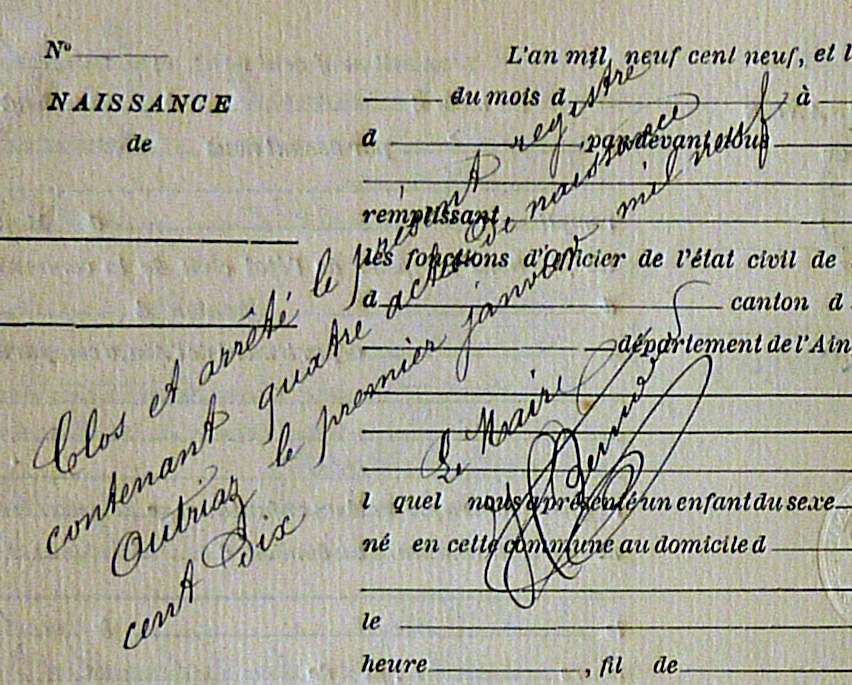 N°
NAISSANCE
de
L'an mil neuf cent neuf, et l
du mois d à
d , par devant nous
remplissant
les fonctions d'officier de l'état civil de
d canton d
département de l'Ain
l quel nous a présenté un enfant du sexe
né en cette commune au domicile d
le
heure , fil de
Clos et arrêté le présent registre
contenant quatre actes de naissance
Outriaz le premier janvier mil neuf
cent Dix
Le Maire